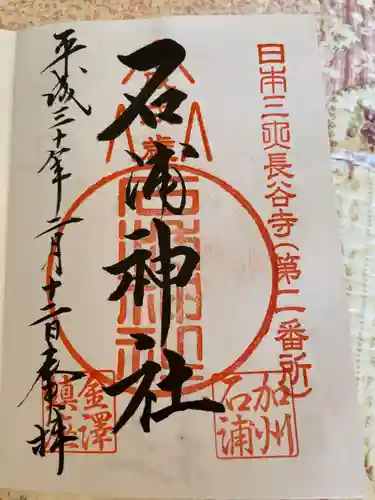 日本三大長谷寺(第二番所)
石浦神社
加州
石浦
金澤
鎮社
平成三十年二月十二日奉拝